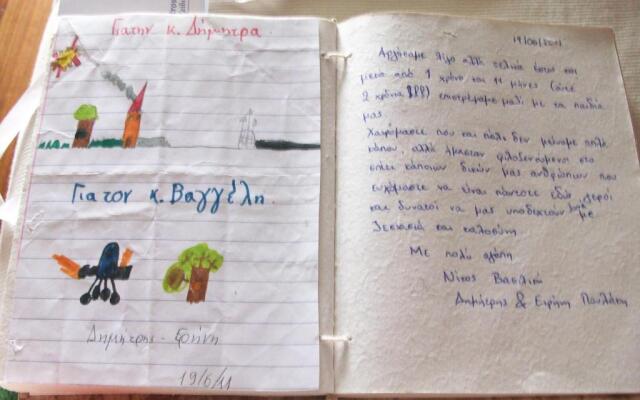 Για την κ. Δήμητρα
Για τον κ. Βαγγέλη
Δημήτρης - Ειρήνη
19/6/11
19/06/2011
Αργήσαμε λίγο αλλά τελικά έστω και
μετά από 1 χρόνο και 11 μήνες (ούτε
2 χρόνια !!!!) επιστρέψαμε μαζί με τα παιδιά
μας.
Χαιρόμαστε που και πάλι δεν μείναμε απλά
κάπου, αλλά ήμασταν φιλοξενούμενοι στο
σπίτι κάποιων δικών μας ανθρώπων που
ευχόμαστε να είναι πάντοτε εδώ γεροί
και δυνατοί να μας υποδεχτούν με
ζεστασιά και καλοσύνη.
Με πολύ αγάπη
Νίκος Βασιλική
Δημήτρης & Ειρήνη